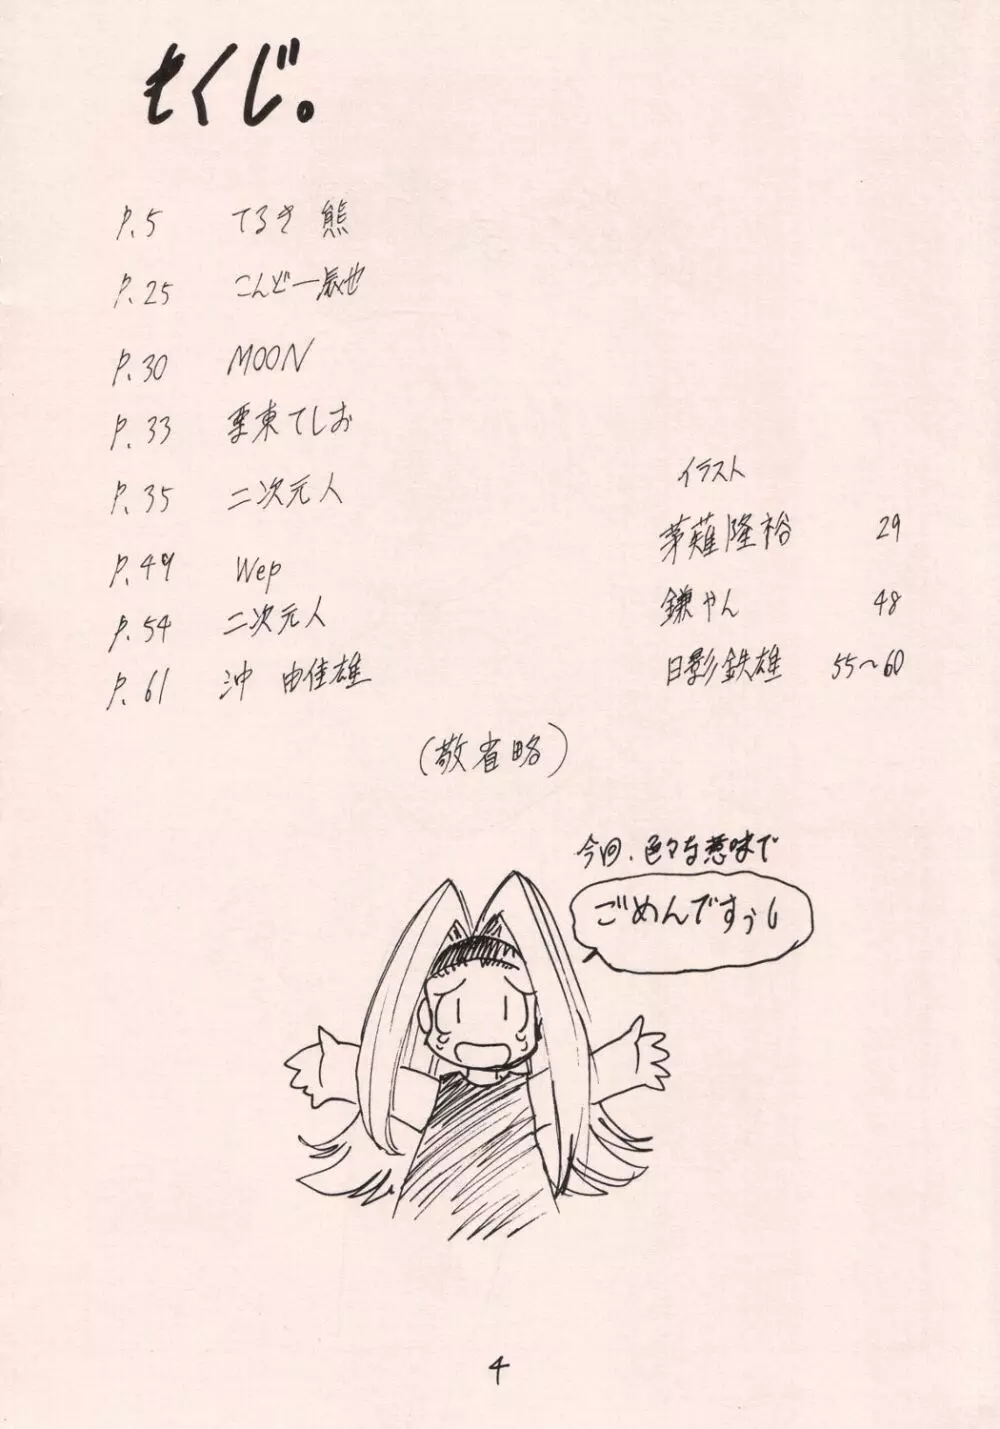 もくじ。
P.5 てるき熊
P.25 こんどー辰也
P.30 MOON
P.33 栗東てしお
P.35 二次元人
P.49 Wep
P.54 二次元人
P.61 沖 由佳雄
イラスト
茅薙隆裕 29
鎌やん 48
日影鉄雄 55〜60
(敬省略)
今回、色々な意味で
ごめんですぅ
4